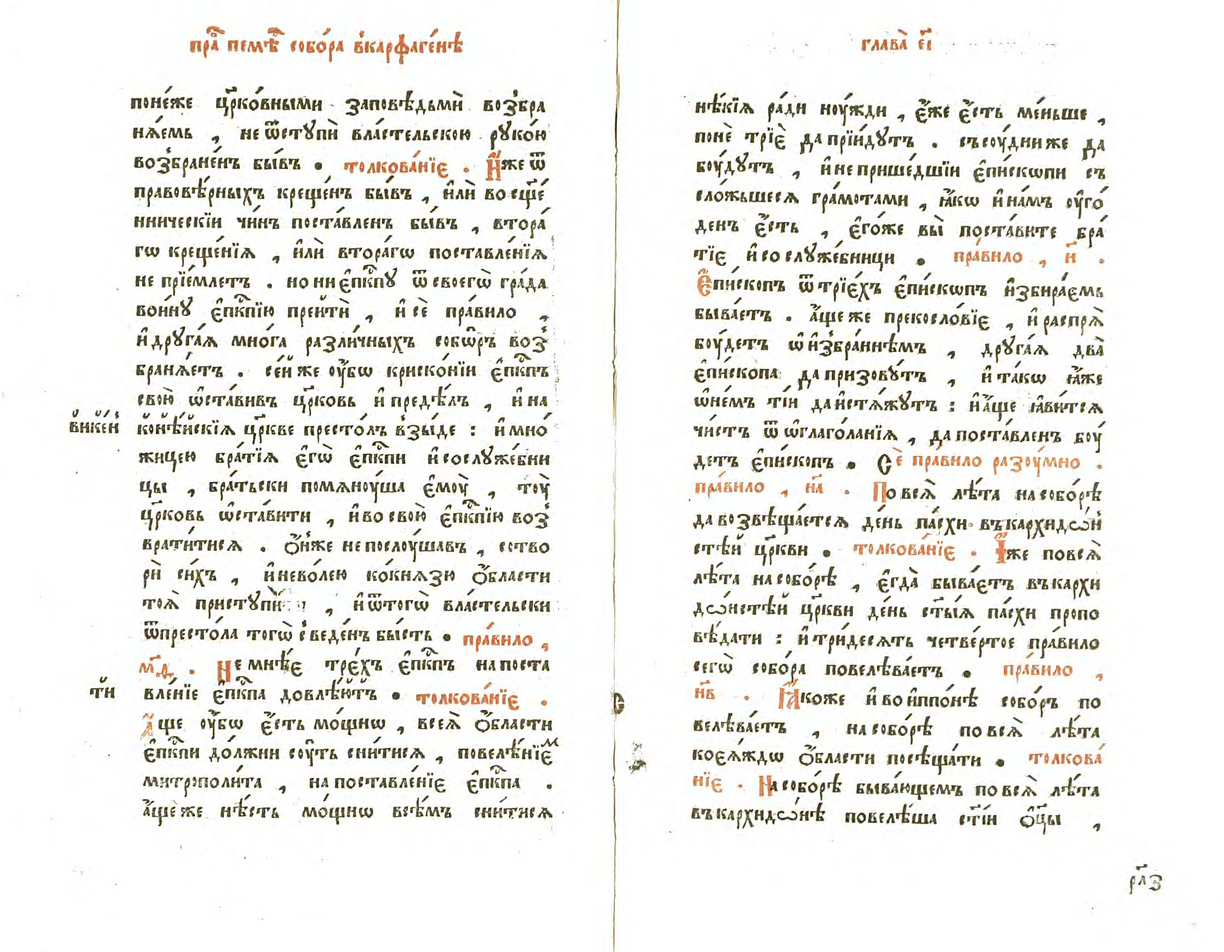 пра́ поме́ собо́ра вкарѳаге́нѣ
поне́же цр҃ко́вными заповѣдьмѝ возбра
нѧ́емь , не ѿстꙋпѝ вла́стельскою рꙋко́ю
возбране́нъ бы́въ . толкова́нїе . И҆́же ѿ
правовѣ́рныхъ креще́нъ бы́въ , и҆лѝ во сщ҃е́
нническїи чи́нъ поста́вленъ бы́въ , втора́
гѡ креще́нїѧ , и҆лѝ втора́гѡ поставле́нїѧ
не прїе́млетъ . но ни є҆пкⷭ҇пꙋ ѿ своегѡ̀ гра́да
во и́нꙋ є҆пкⷭ҇пїю преитѝ , и҆ сѐ пра́вило ,
и҆ дрꙋга́ѧ мно́га разли́чныхъ собѡ́ръ воз
бранѧ́етъ . се́и же ᲂу҆́бѡ криско́нїи є҆пкⷭ҇пъ
свою̀ ѡ҆ста́вивъ цр҃ковь и҆ предѣ́лъ , и҆ на
вике́и
ко́нѣ́йскїѧ цр҃кве престо́лъ взы́де : и҆ мно́
жицею бра́тїѧ є҆гѡ̀ є҆пкⷭ҇пи и҆ сослꙋже́бни
цы , бра́тьски помѧноу́ша є҆моу̀ , тоу̀
цр҃ковь ѡ҆ста́вити , и҆ во свою̀ є҆пкⷭ҇пїю воз
врати́тисѧ . Ѻ҆́нже не послоу́шавъ , сотво
рѝ си́хъ , и҆ нево́лею ко кнѧ́зю ѻ҆́бласти
тоѧ̀ пристꙋпѝ , и҆ ѿ тогѡ̀ вла́стельски
ѿ престо́ла тогѡ̀ сведе́нъ бы́сть . пра́вило ,
м҃д . Не мнѣ́е тре́хъ є҆пкⷭ҇пъ на поста
т҃и
вле́нїе є҆пкⷭ҇па довлѣ́ютъ . толкова́нїе .
А҆́ще ᲂу҆́бѡ є҆́сть мо́щнѡ , всеѧ̀ ѻ҆́бласти
є҆пкⷭ҇пи до́лжни соу́ть сни́тисѧ , повелѣ́нїем
митрополи́та , на поставле́нїе є҆пкⷭ҇па .
а҆́ще же нѣ́сть мо́щнѡ всѣ́мъ сни́тисѧ
глава̀ є҃і
нѣ́кїѧ ра́ди ноу́жди , є҆́же є҆́сть ме́ньше ,
понѐ трїѐ да прїи́дꙋтъ . съ соу́дни же да
боу́дꙋтъ , и҆ не прише́дшїи є҆пи́скѡпи съ
сло́жьшесѧ гра́мотами , ꙗ҆́кѡ и҆ на́мъ ᲂу҆го́
денъ є҆́сть , є҆го́же вы̀ поста́вите бра́
тїе и҆ со слꙋже́бници . пра́вило , н҃ .
Є҆пи́скопъ ѿ трїе́хъ є҆пи́скѡпъ и҆збира́емь
быва́етъ . а҆́ще же прекосло́вїе , и҆ распрѧ̀
боу́детъ ѡ҆ и҆збра́ннѣмъ , дрꙋга́ѧ два̀
є҆пи́скопа да призовꙋ́тъ , и҆ та́кѡ ꙗ҆́же
ѡ҆ не́мъ ті́и да и҆стѧ́жꙋтъ : и҆ а҆́ще ꙗ҆ви́тсѧ
чи́стъ ѿ ѡ҆глаго́ланїѧ , да поста́вленъ боу́
детъ є҆пи́скопъ . Сѐ пра́вило разоу́мно .
пра́вило , н҃а . По всѧ̀ лѣ́та на собо́рѣ
да возвѣща́етсѧ де́нь па́схи въ кархидѡ́н
стѣ́й цр҃кви . толкова́нїе . И҆́же по всѧ̀
лѣ́та на собо́рѣ , є҆гда̀ быва́етъ въ кархи
дѡ́нстѣ́й цр҃кви де́нь ст҃ы́ѧ па́схи пропо
вѣ́дати : и҆ три́десѧть четве́ртое пра́вило
сегѡ̀ собо́ра повелѣва́етъ . пра́вило ,
н҃в . Ꙗ҆́коже и҆ во и҆ппо́нѣ собо́ръ по
велѣва́етъ , на собо́рѣ по всѧ̀ лѣ́та
коеѧ́ждѡ ѻ҆́бласти посѣща́ти . толкова́
нїе . На собо́рѣ быва́ющемъ по всѧ̀ лѣ́та
въ кархидѡ́нѣ повелѣ́ша ст҃і́и ѻ҆ц҃ы̀ ,
рл҃з